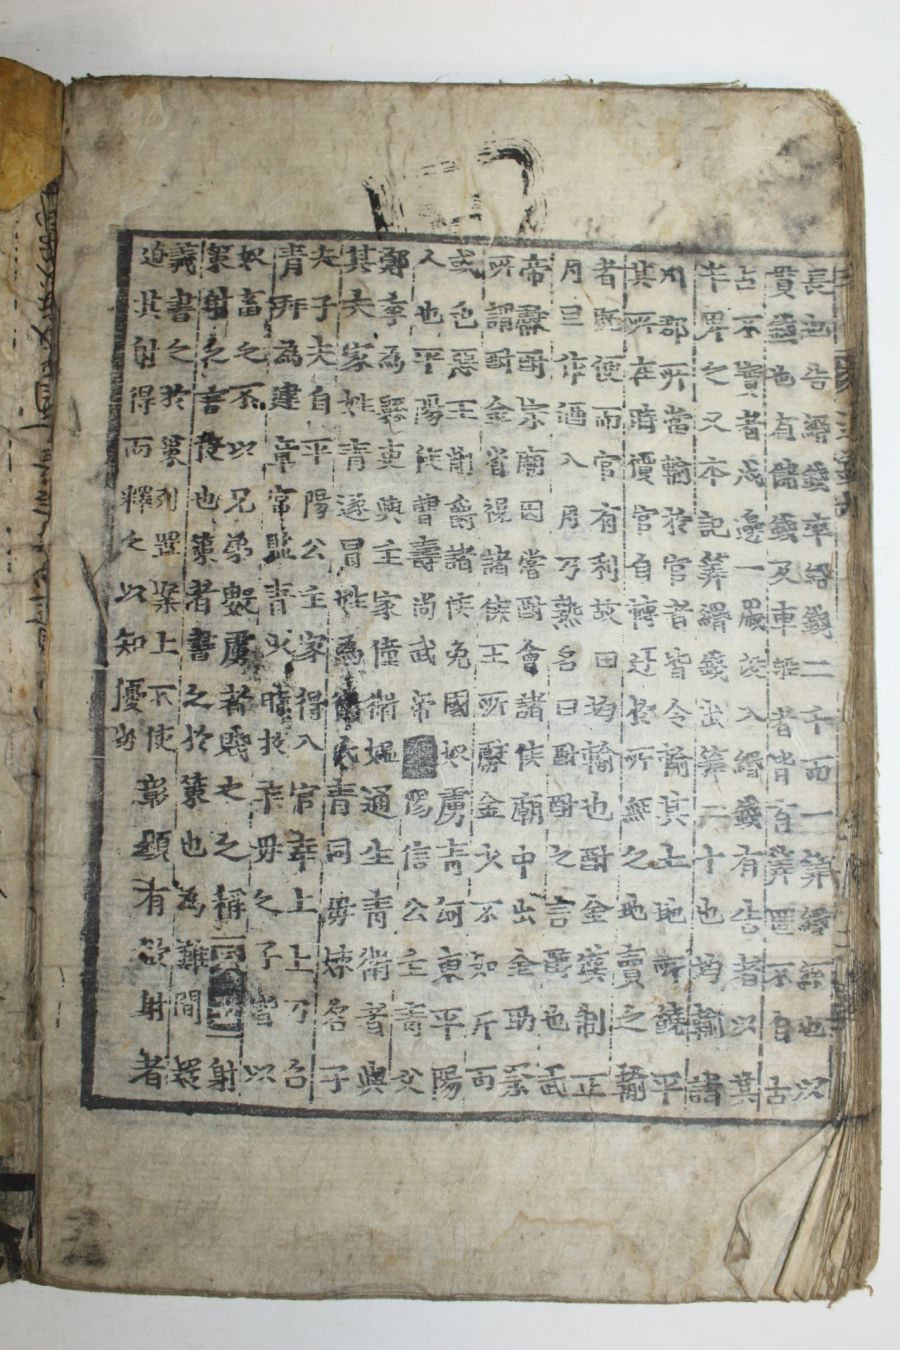 告緡錢率緡錢二千而一算緡也以
貫錢也有儲錢及車船者皆有算匿不自占
占不實者戍邊一歲沒入緡錢有告者以其
半畀之又本記算緡錢出算二十也均輸諸
州郡所當輸於官者皆令輸其土地所饒平
其所在時價官自轉迁於所無之地賣之輸
者既便而官有利故曰均輸也酎金漢制正
月旦作酒八月乃熟名曰酎酎之言也武
帝酎宗廟因嘗酎會諸侯廟中出金助祭
所謂酎金省視諸侯王所獻金少不如斤而
或色惡王削爵諸侯免國奴虜青河東平陽
人也平陽侯曹壽尚武帝陽信公主青父
鄭季為縣吏與主家僮衛媼通生青衛者與
其夫家姓青遂冒姓為衛氏青同毋姊名子
夫子夫自平陽公主家得入官幸上上乃召
青拜為建章常監青少時毋之子皆以
奴畜之不以兄弟數虜者賤之之稱射
策射之言投也策者書之於策也為難問疑
義書之於策列置案上不使彰顯有欲射者
迫其射得而釋之以知優劣